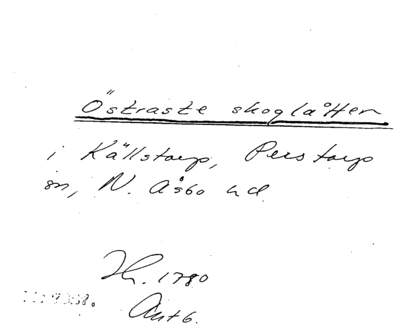 Östraste skoglåtten
i Källstorp, Perstorp
sn, N. Åsbo hd.
1780
Ant 6.